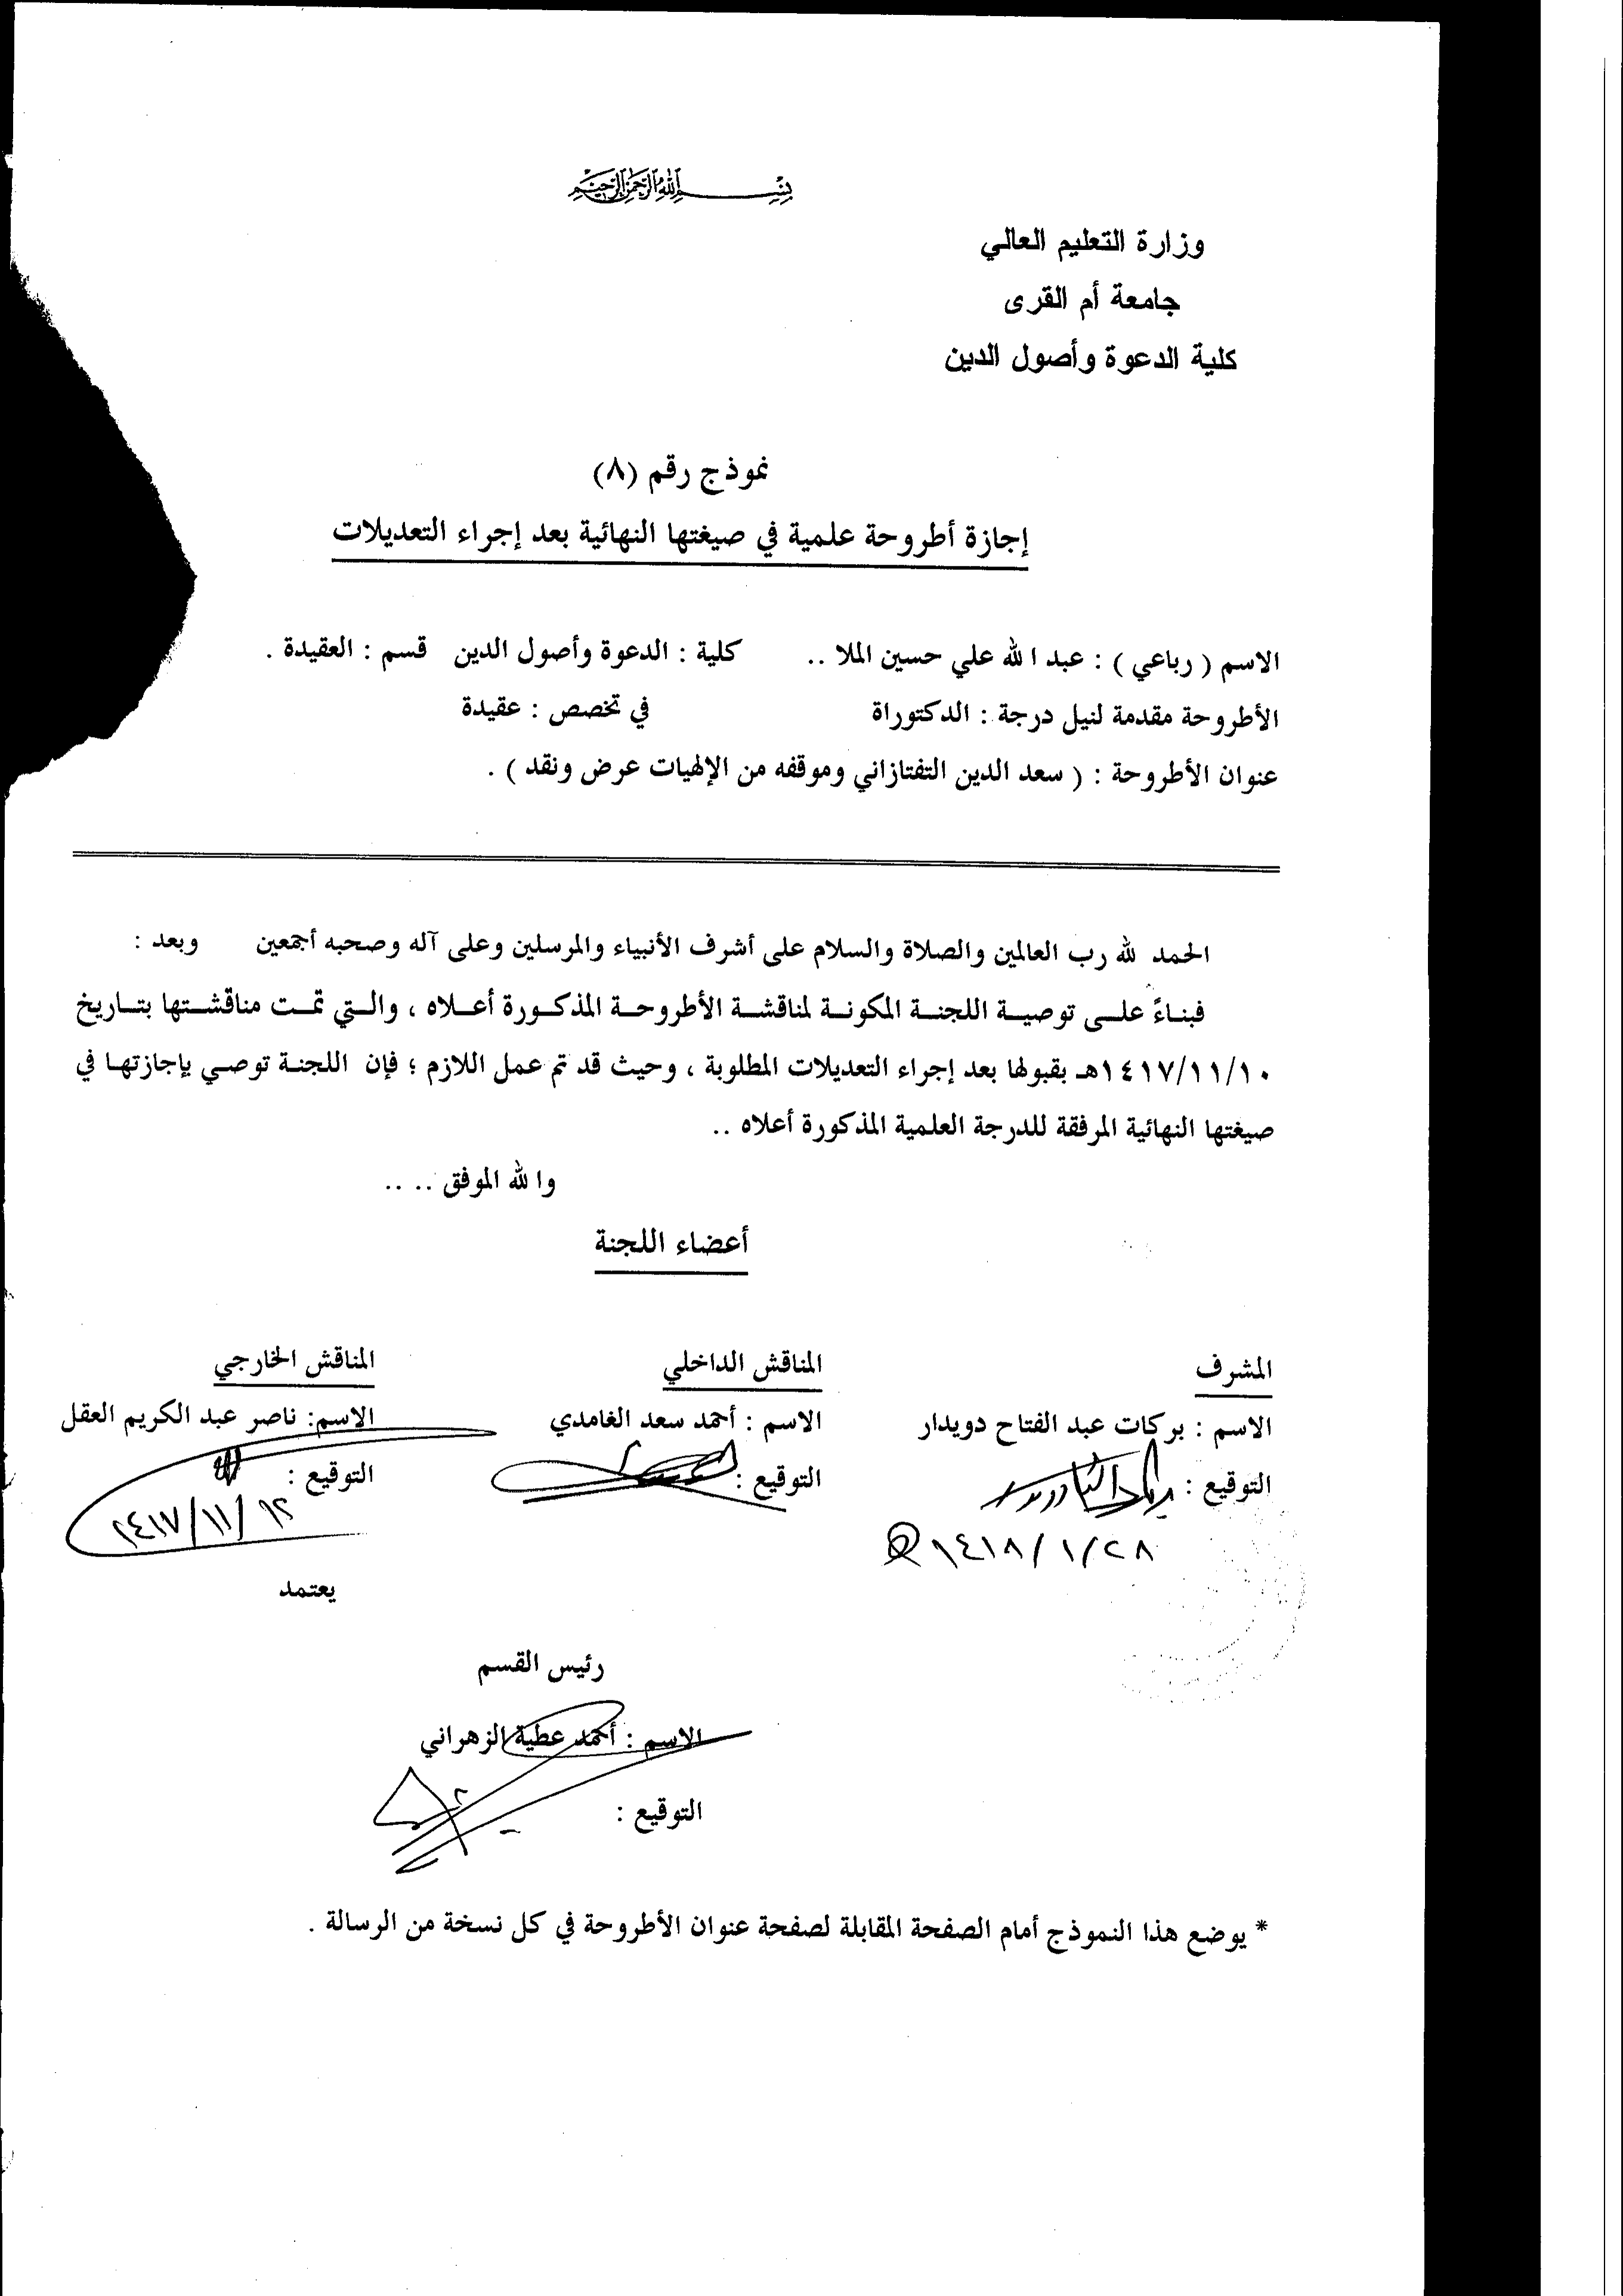 بسم الله الرحمن الرحيم
وزارة التعليم العالي
جامعة أم القرى
كلية الدعوة وأصول الدين
نموذج رقم (٨)
إجازة أطروحة علمية في صيغتها النهائية بعد إجراء التعديلات
الاسم ( رباعي ) : عبد الله علي حسين الملا .. كلية : الدعوة وأصول الدين قسم : العقيدة .
الأطروحة مقدمة لنيل درجة : الدكتوراة في تخصص : عقيدة
عنوان الأطروحة : ( سعد الدين التفتازاني وموقفه من الإلهيات عرض ونقد ) .
الحمد لله رب العالمين والصلاة والسلام على أشرف الأنبياء والمرسلين وعلى آله وصحبه أجمعين وبعد :
فبناءً على توصية اللجنة المكونة لمناقشة الأطروحة المذكورة أعلاه ، والتي تمت مناقشتها بتاريخ
١٤١٧/١١/١٠هـ بقبولها بعد إجراء التعديلات المطلوبة ، وحيث قد تم عمل اللازم ؛ فإن اللجنة توصي بإجازتها في
صيغتها النهائية المرفقة للدرجة العلمية المذكورة أعلاه ..
والله الموفق .. ..
أعضاء اللجنة
المشرف المناقش الداخلي المناقش الخارجي
الاسم : بركات عبد الفتاح دويدار الاسم : أحمد سعد الغامدي الاسم: ناصر عبد الكريم العقل
التوقيع : التوقيع : التوقيع :
١٤١٨/١/٢٨
يعتمد
رئيس القسم
الاسم : أحمد عطية الزهراني
التوقيع :
* يوضع هذا النموذج أمام الصفحة المقابلة لصفحة عنوان الأطروحة في كل نسخة من الرسالة .